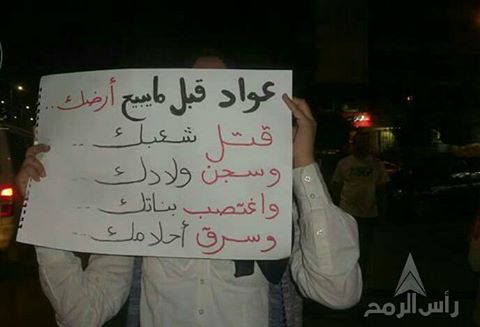 عواد قبل مايبيع أرضك..
قتل شعبك...
وسجن ولادك...
واغتصب بناتك...
وسرق أحلامك...
رأس الرمح